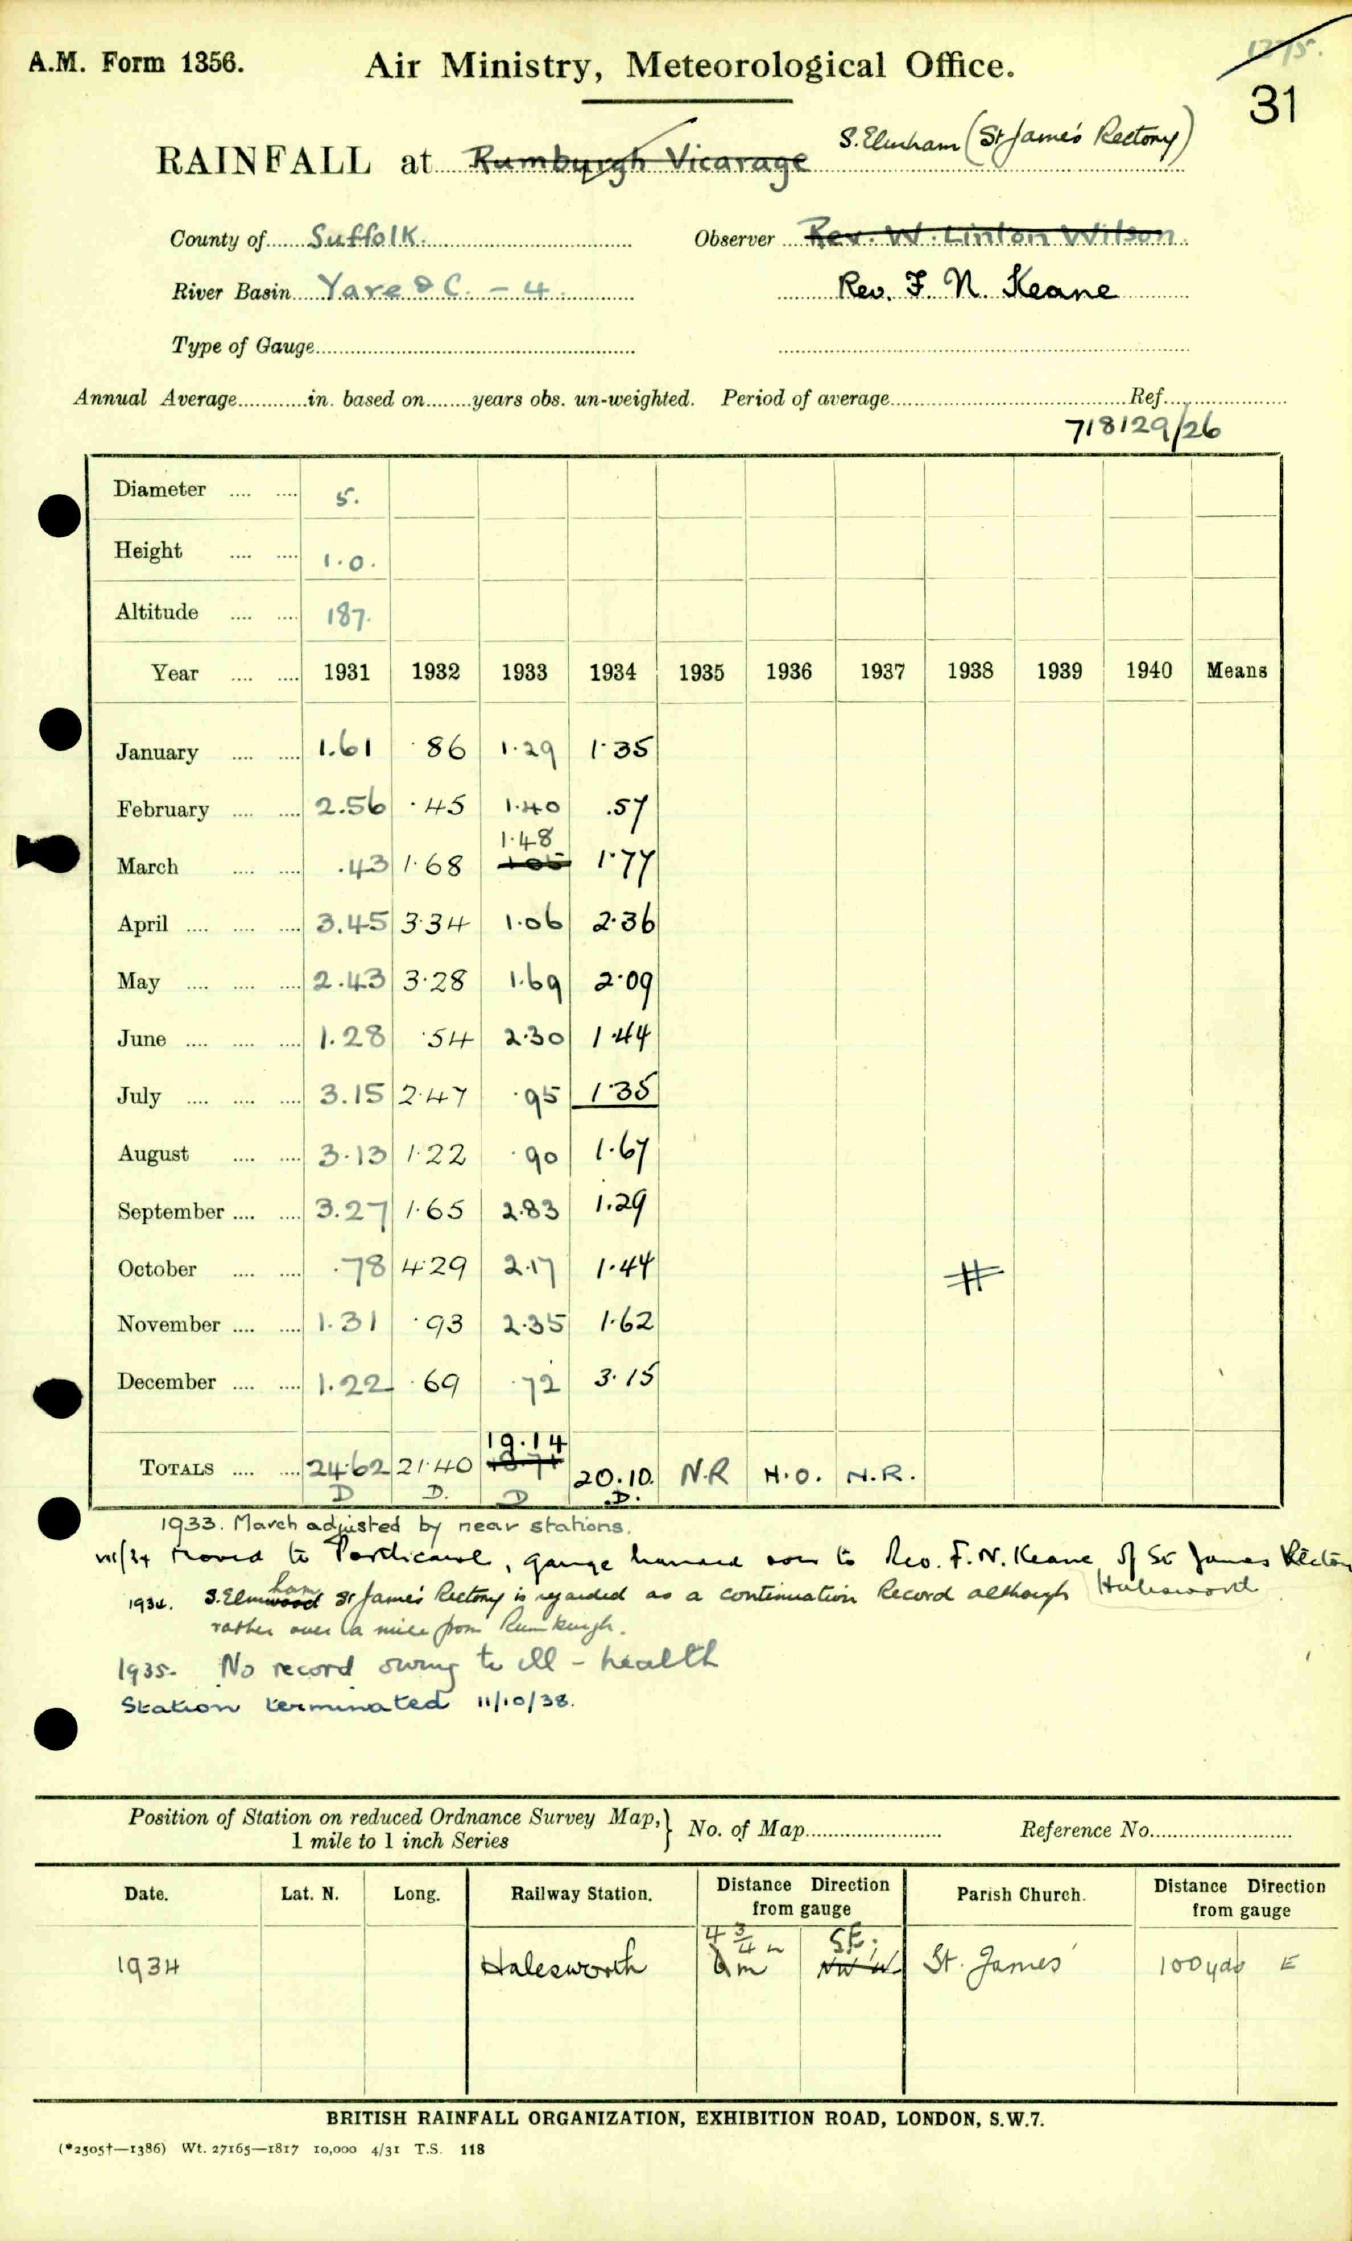 1375.
A.M. Form 1356. Air Ministry, Meteorological Office.
31
RAINFALL at Rumburgh Vicarage S. Elmham (St James's Rectory)
County of Suffolk. Observer Rev. W. Linton Wilson.
River Basin Yare & C. - 4. Rev. F. N. Keane
Type of Gauge
Annual Average in. based on years obs. un-weighted. Period of average Ref.
718129/26
Diameter 5.
Height 1.0.
Altitude 187.
Year 1931 1932 1933 1934 1935 1936 1937 1938 1939 1940 Means
January 1.61 .86 1.29 1.35
February 2.56 .45 1.40 .57
1.48
March .43 1.68 1.05 1.77
April 3.45 3.34 1.06 2.36
May 2.43 3.28 1.69 2.09
June 1.28 .54 2.30 1.44
July 3.15 2.47 .95 1.35
August 3.13 1.22 .90 1.67
September 3.27 1.65 2.83 1.29
October .78 4.29 2.17 1.44 #
November 1.31 .93 2.35 1.62
December 1.22 .69 .72 3.15
19.14
TOTALS 24.62 21.40 18.71 20.10. N.R H.O. N.R.
D D. D .D.
1933. March adjusted by near stations.
VII/34 Moved to gauge handed over to Rev. F. N. Keane of St James Rectory
Halesworth
1934. S. Elmham St James's Rectory is regarded as a continuation Record although
rather over a mile from Rumburgh.
1935. No record owing to ill-health
Station terminated 11/10/38.
Position of Station on reduced Ordnance Survey Map, 1 mile to 1 inch Series } No. of Map Reference No.
Date. Lat. N. Long. Railway Station. Distance Direction from gauge Parish Church. Distance Direction from gauge
4 3/4 m SE.
1934 Halesworth 6m NW'W. St. James' 100 yds E
BRITISH RAINFALL ORGANIZATION, EXHIBITION ROAD, LONDON, S.W.7.
(*2505†—1386) Wt. 27165—1817 10,000 4/31 T.S. 118